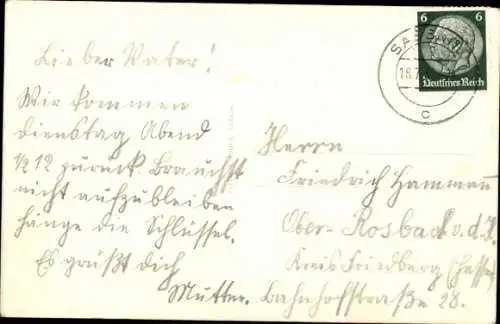 Lieber Vater!
Wir kommen
dienstag Abend
1/2 12 zurück. Brauchst
nicht aufzubleiben
hänge die Schlüssel.
Es grüßt dich
Mutter.
Herrn
Friedrich Hammann
Ober-Rosbach v.d.H.
Kreis Friedberg (Hessen)
Bahnhofstraße 28.
6 6
Deutsches Reich
c